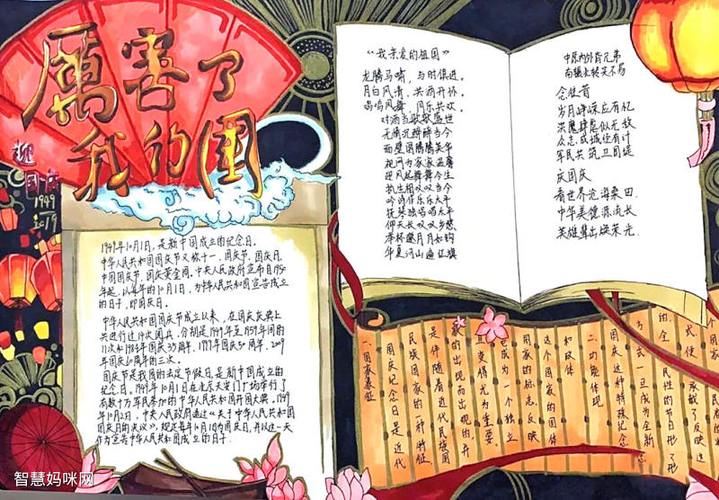 厲害了
我的国
迎国庆
1949
2019
1949年10月1日,是新中国成立的纪念日。
中华人民共和国国庆节又称十一、国庆节、国庆日、
中国国庆节、国庆黄金周。中央人民政府宣布自1950
年起,以每年的10月1日,为中华人民共和国宣告成立
的日子,即国庆日。
中华人民共和国国庆节成立以来,在国庆庆典上
共进行过14次阅兵,分别是1949年至1959年间的
11次和1984年国庆35周年、1999年国庆50周年、2009
年国庆60周年的三次。
国庆节是我国的法定节假日,是新中国成立的
纪念日。1949年10月1日在北京天安门广场举行了
有数十万军民参加的中华人民共和国开国大典。1949
年10月2日,中央人民政府通过《关于中华人民共和国
国庆日的决议》,规定每年10月1日为国庆日,并以这一天
作为宣告中华人民共和国成立的日子。
《我亲爱的祖国》
龙腾马啸,与时俱进。
月白风清,共酒开怀。
对酒当歌歌盛世
祝福祖国
吟诗作乐乐太平
抚琴独唱唱大年
仰天长叹叹乡愁
举杯邀月月如钩
华夏河山遍红旗
念往昔
岁月峥嵘应有忆
洪魔肆虐似无敌
众志成城任有计
军民共筑卫国堤
庆国庆
看世界沧海桑田
中华美德源流长
英雄辈出焕荣光
承载了反映这
全民性的节日形了形
式一旦成为全新
国庆这种特殊纪念
二功能体现
和政体
这个国家的国体
家的标志,反映
它成为一个独立
且变得尤为重要
的出现而出现的,并
民族国家的一种特征,
是伴随着近代民族国
国庆纪念日是近代
一国家象征
智慧妈咪网